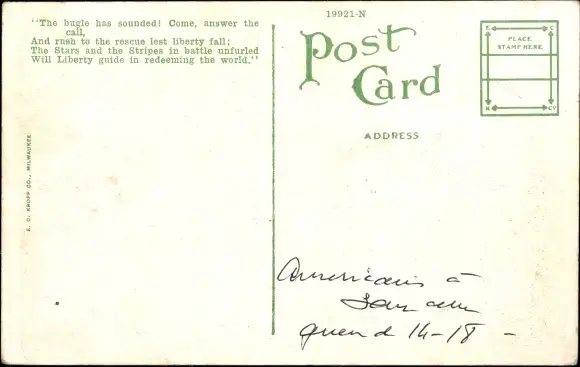 "The bugle has sounded! Come, answer the
call,
And rush to the rescue lest liberty fall;
The Stars and the Stripes in battle unfurled
Will Liberty guide in redeeming the world."
E. C. KROPP CO., MILWAUKEE
19921-N
Post
Card
ADDRESS
E. C.
PLACE
STAMP HERE
K. CO.
Americains à
14-18 -